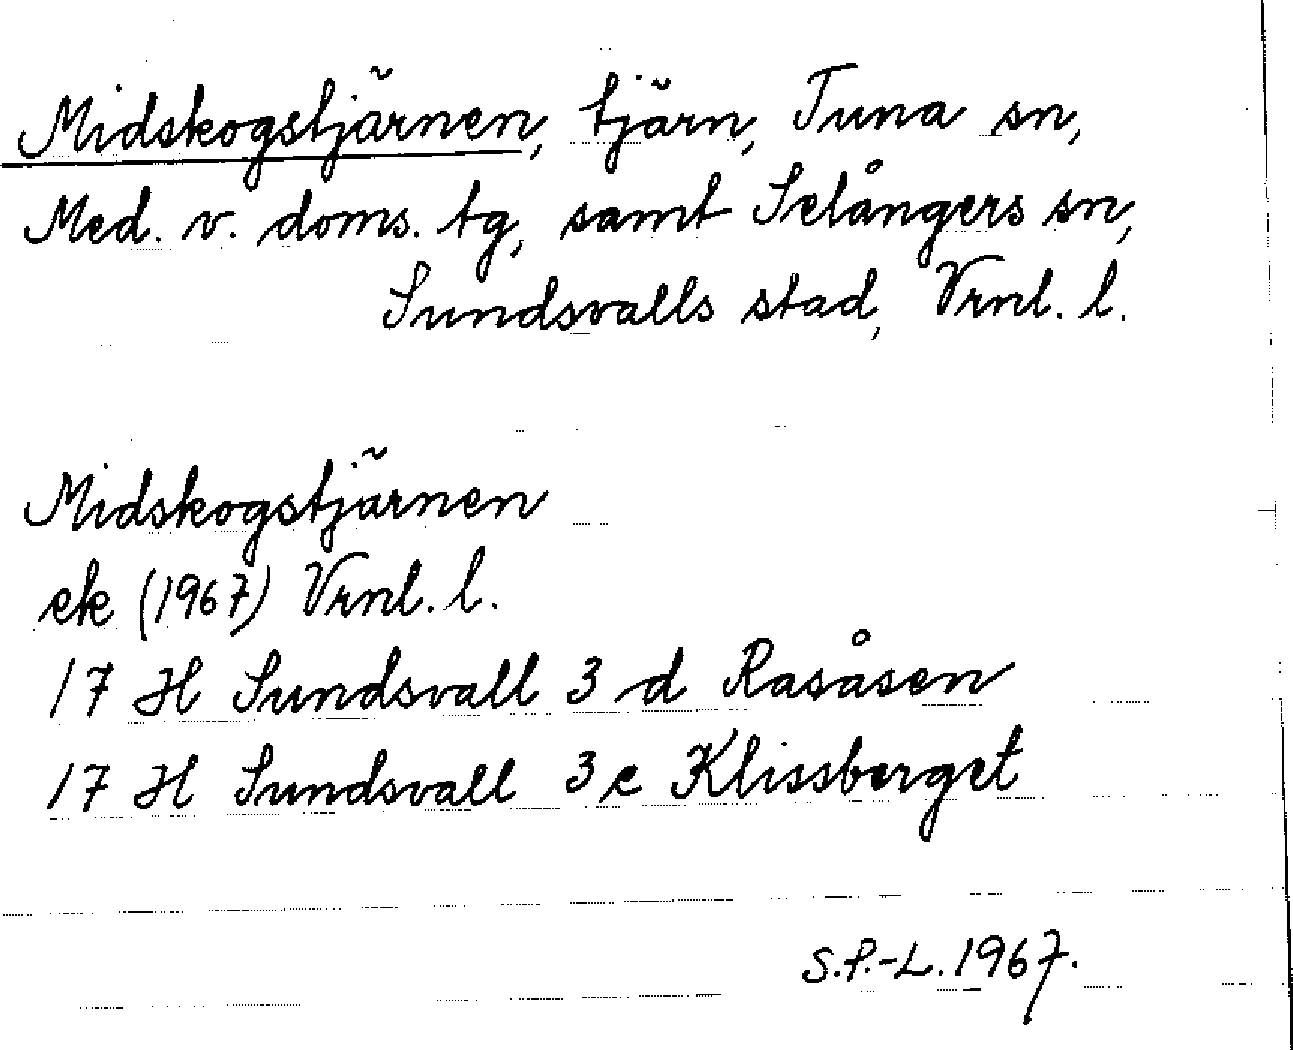 Midskogstjärnen, tjärn, Tuna sn,
Med. v. doms. tg, samt Selångers sn,
Sundsvalls stad, Vrnl. l.
Midskogstjärnen
ek (1967) Vrnl. l.
17 H Sundsvall 3 d Rasåsen
17 H Sundsvall 3 e Klissberget
S.P.-L. 1967.